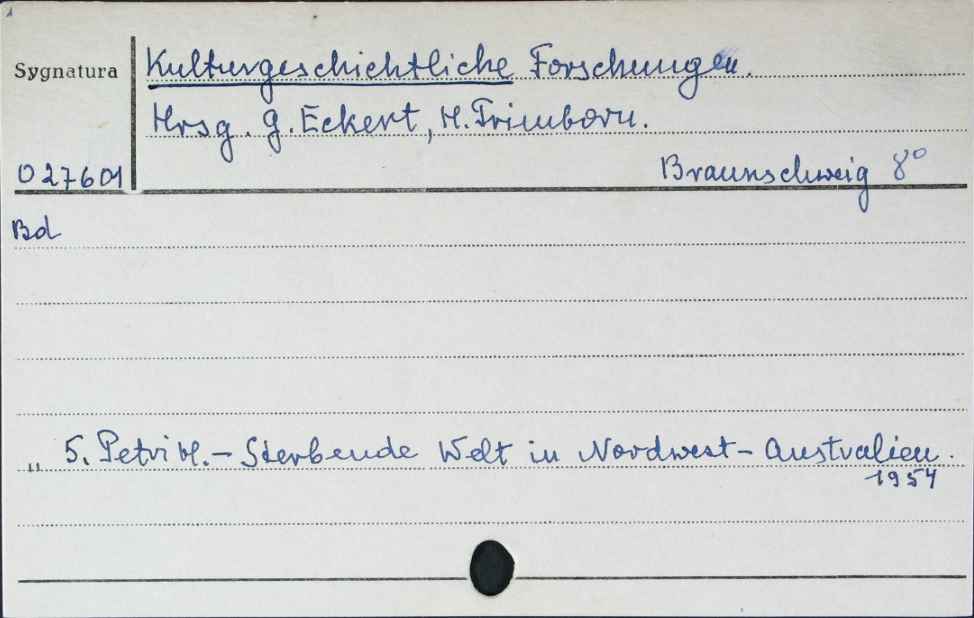 Sygnatura
Kulturgeschichtliche Forschungen.
Hrsg. G. Eckert, H. Trimborn.
O 27601
Braunschweig 8°
Bd
" 5. Petri H. - Sterbende Welt in Nordwest-Australien.
1954